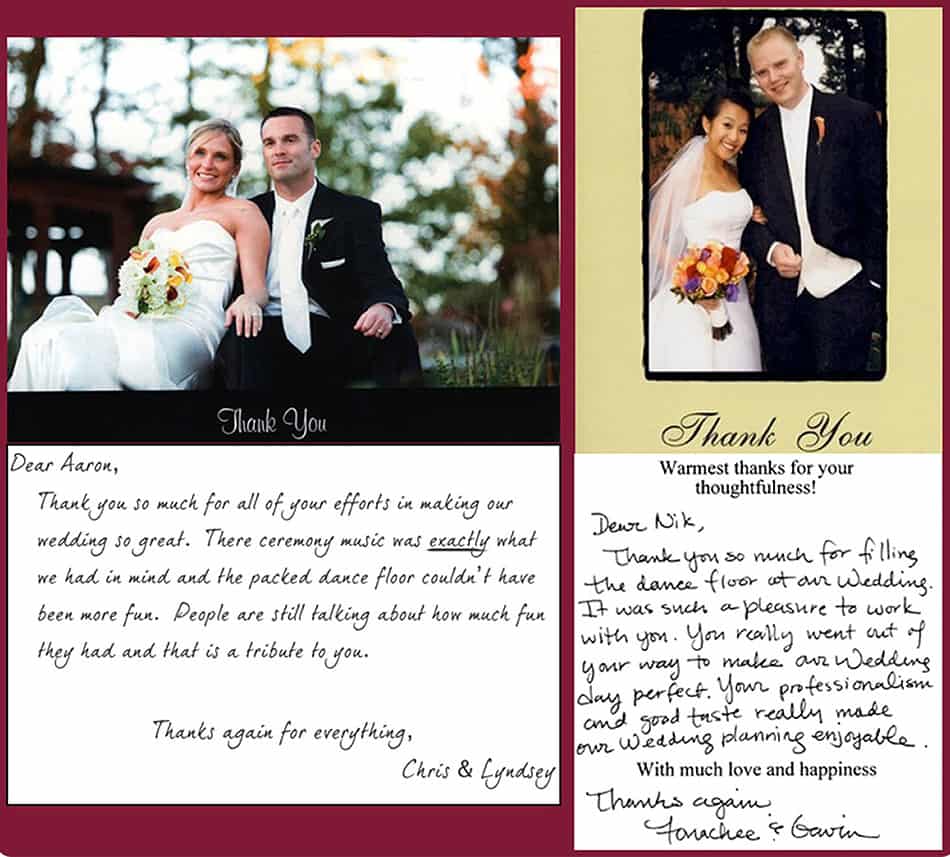 Thank You
Dear Aaron,
Thank you so much for all of your efforts in making our
wedding so great. There ceremony music was exactly what
we had in mind and the packed dance floor couldn't have
been more fun. People are still talking about how much fun
they had and that is a tribute to you.
Thanks again for everything,
Chris & Lyndsey
Thank You
Warmest thanks for your
thoughtfulness!
Dear Nik,
Thank you so much for filling
the dance floor at our Wedding.
It was such a pleasure to work
with you. You really went out of
your way to make our Wedding
day perfect. Your professionalism
and good taste really made
our Wedding planning enjoyable.
With much love and happiness
Thanks again
& Gavin